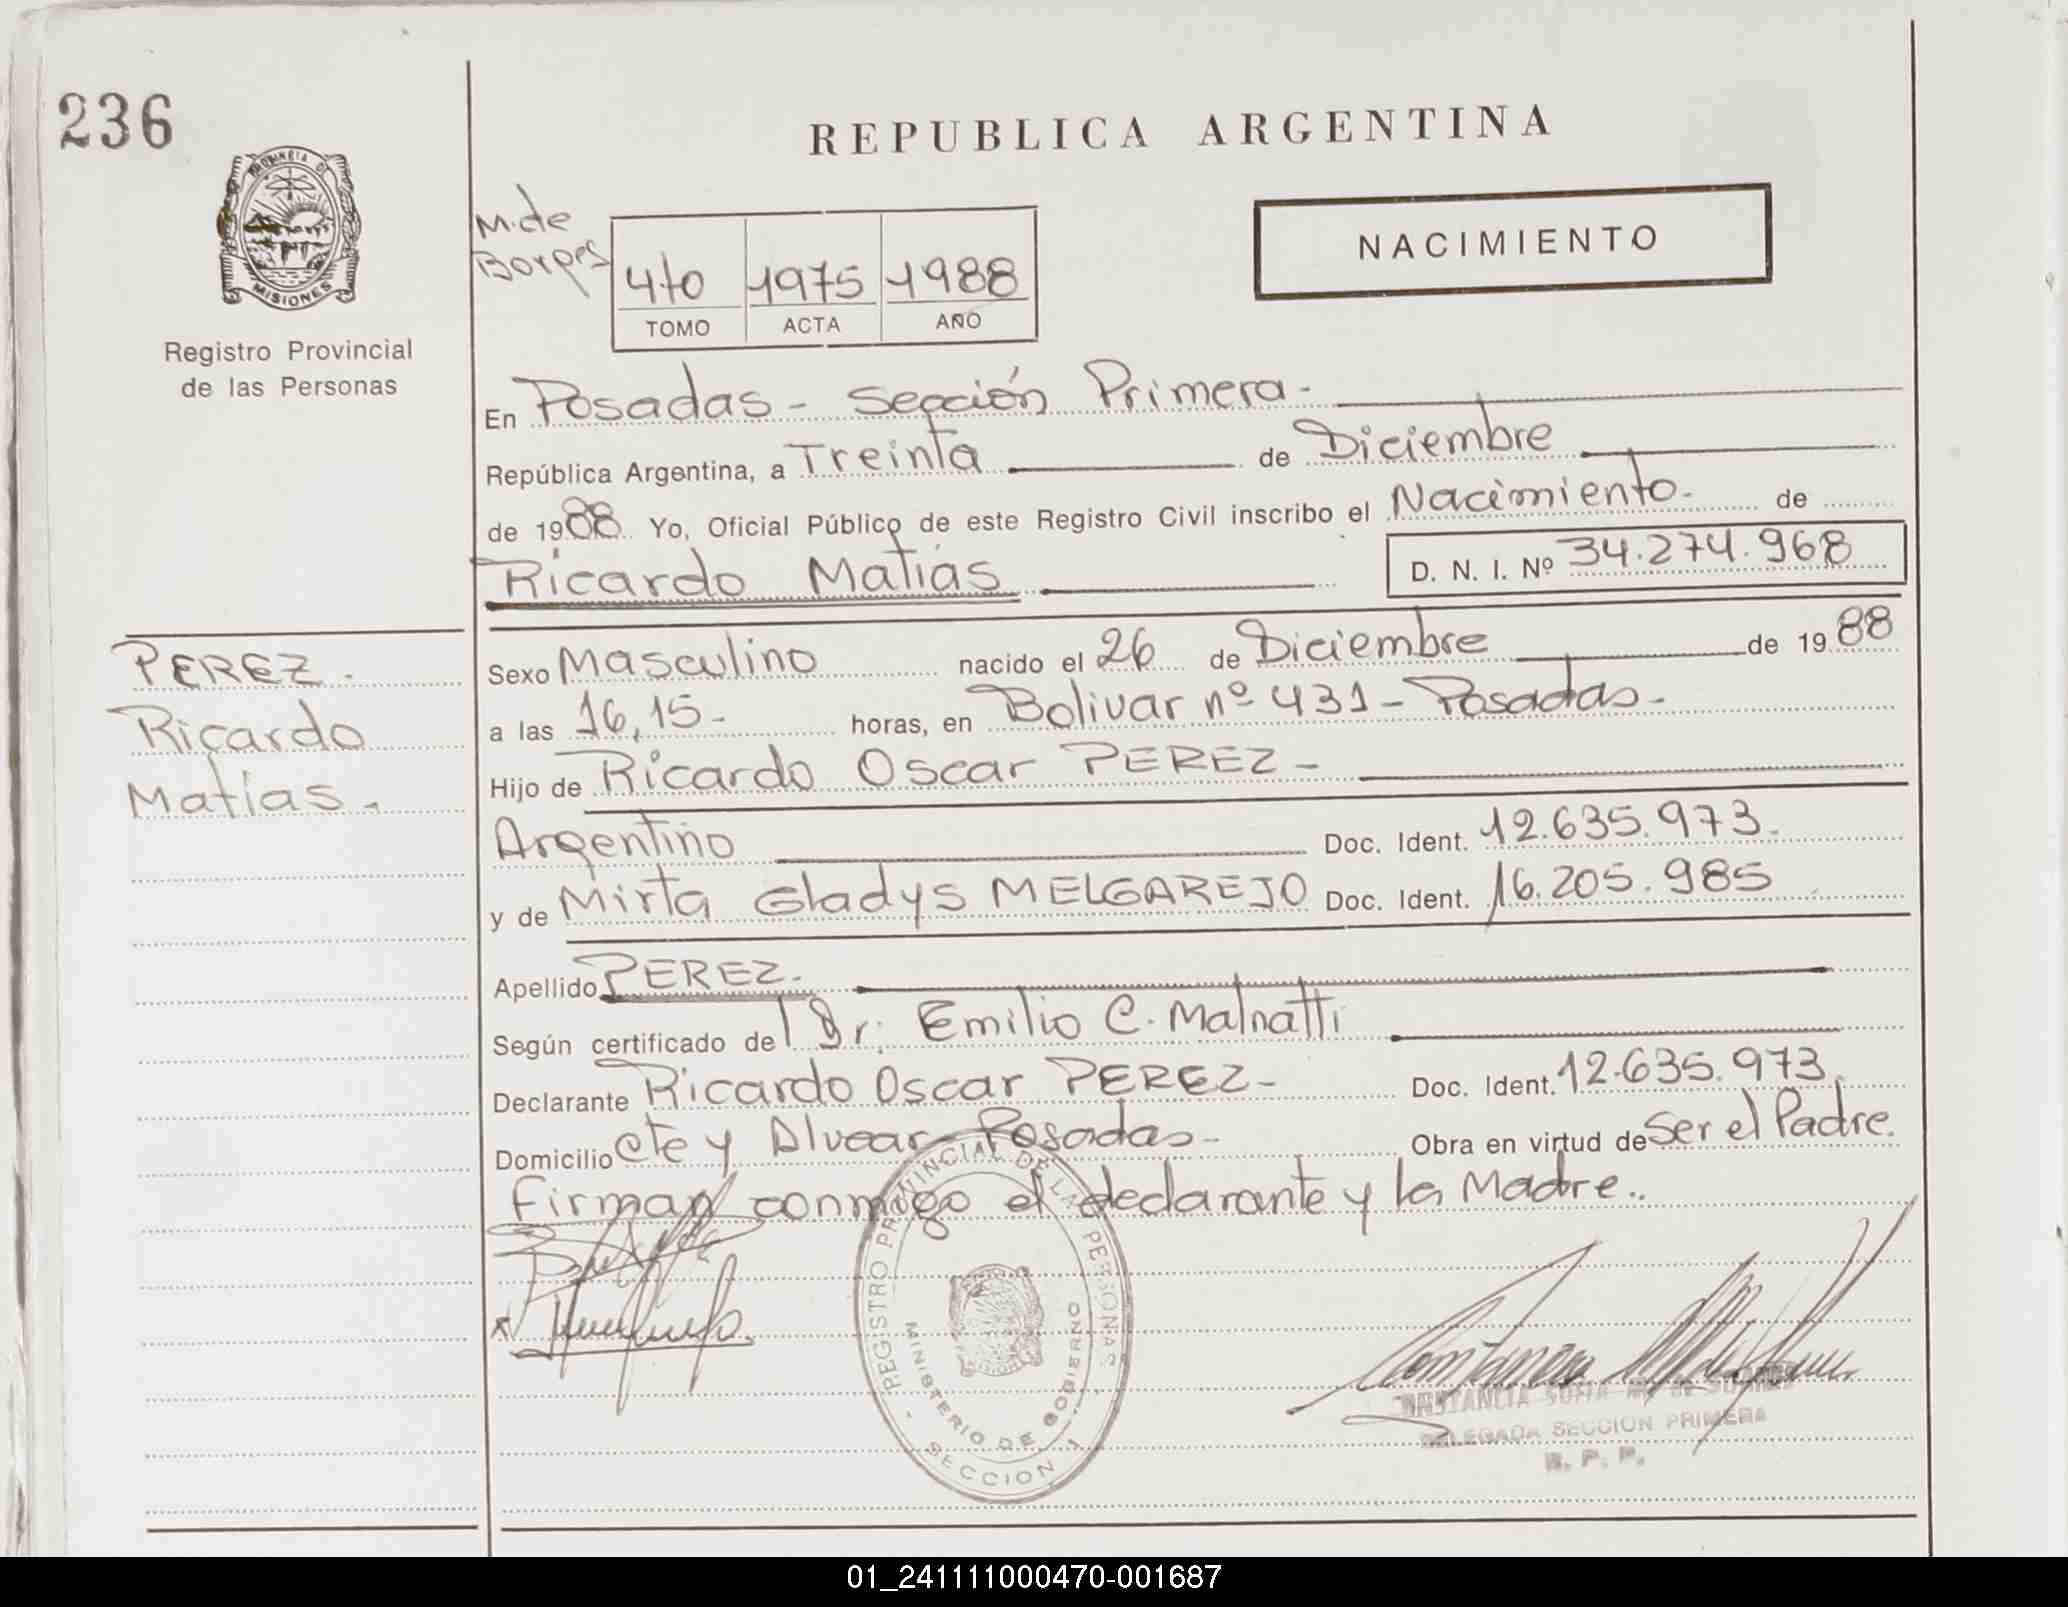 236
REPUBLICA ARGENTINA
PROVINCIA DE
MISIONES
Registro Provincial
de las Personas
M. de
Borges
4to 1975 1988
TOMO ACTA AÑO
NACIMIENTO
En Posadas - Sección Primera -
República Argentina, a Treinta de Diciembre
de 1988 Yo, Oficial Público de este Registro Civil inscribo el Nacimiento. de
Ricardo Matías D. N. I. Nº 34.274.968
PEREZ.
Ricardo
Matías.
Sexo Masculino nacido el 26 de Diciembre de 1988
a las 16,15- horas, en Bolivar nº 431 - Posadas -
Hijo de Ricardo Oscar PEREZ -
Argentino Doc. Ident. 12.635.973.
y de Mirta Gladys MELGAREJO Doc. Ident. 16.205.985
Apellido PEREZ.
Según certificado del Dr. Emilio C. Malnatti
Declarante Ricardo Oscar PEREZ - Doc. Ident. 12.635.973.
Domicilio Cte y Alvear - Posadas - Obra en virtud de Ser el Padre.
Firman conmigo el declarante y la Madre..
REGISTRO PROVINCIAL DE LAS PERSONAS
MINISTERIO DE GOBIERNO
- SECCION 1 -
CONSTANCIA SOFIA
DELEGADA SECCION PRIMERA
R. P. P.
01_241111000470-001687